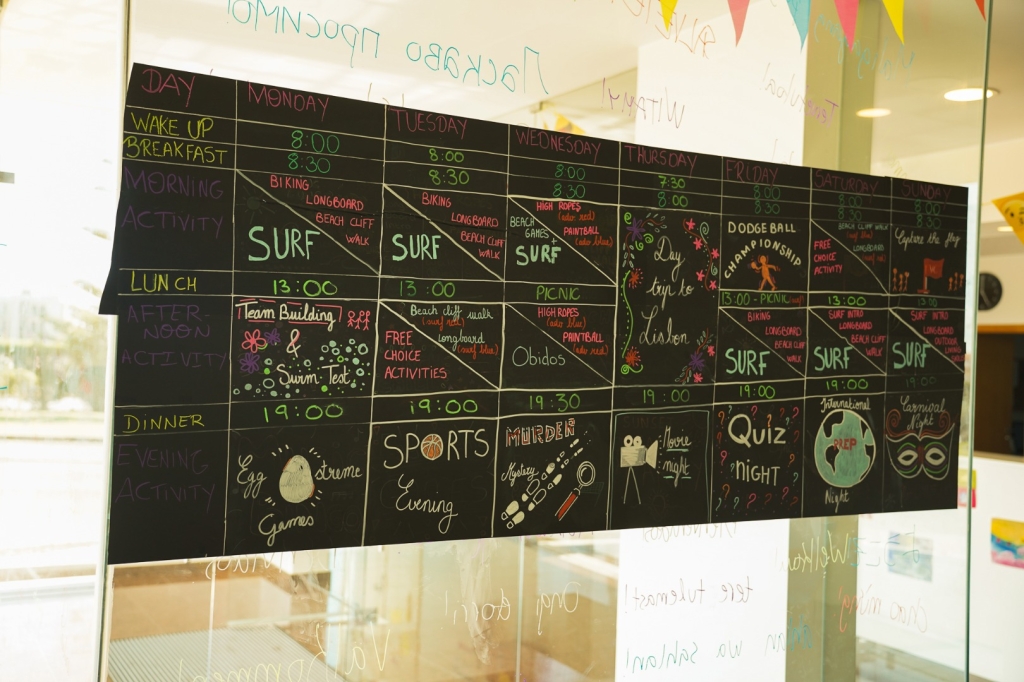 Ласкаво просимо!
Witamy!
DAY MONDAY TUESDAY WEDNESDAY THURSDAY FRIDAY SATURDAY SUNDAY
WAKE UP 8:00 8:00 8:00 7:30 8:00 8:00 8:00
BREAKFAST 8:30 8:30 8:30 8:30 8:30
MORNING
ACTIVITY
BIKING
LONGBOARD
BEACH CLIFF
WALK
SURF
BIKING
LONGBOARD
BEACH CLIFF
WALK
SURF
HIGH ROPES
(ado red)
PAINTBALL
(ado blue)
BEACH
GAMES
+
SURF
Day
trip to
Lisbon
DODGEBALL
CHAMPIONSHIP
BEACH CLIFF WALK
(surf blue)
LONGBOARD
FREE
CHOICE
ACTIVITY
Capture the flag
LUNCH 13:00 13:00 PICNIC 13:00 - PICNIC 13:00 13:00
AFTER-
NOON
ACTIVITY
Team Building
&
Swim-Test
Beach cliff walk
(surf red)
Longboard
(surf blue)
FREE
CHOICE
ACTIVITIES
HIGH ROPES
(ado blue)
PAINTBALL
(ado red)
Obidos
BIKING
LONGBOARD
BEACH CLIFF
WALK
SURF
SURF INTRO
LONGBOARD
BEACH CLIFF
WALK
SURF
SURF INTRO
LONGBOARD
OUTDOOR
SURF
DINNER 19:00 19:00 19:30 19:00 19:00 19:00 19:00
EVENING
ACTIVITY
Egg streme
Games
SPORTS
Evening
MURDER
Mystery
Movie
night
Quiz
NIGHT
International
PREP
Night
Carnival
Night
tere tulemast!
Ongi etorri!
wa sahlan!